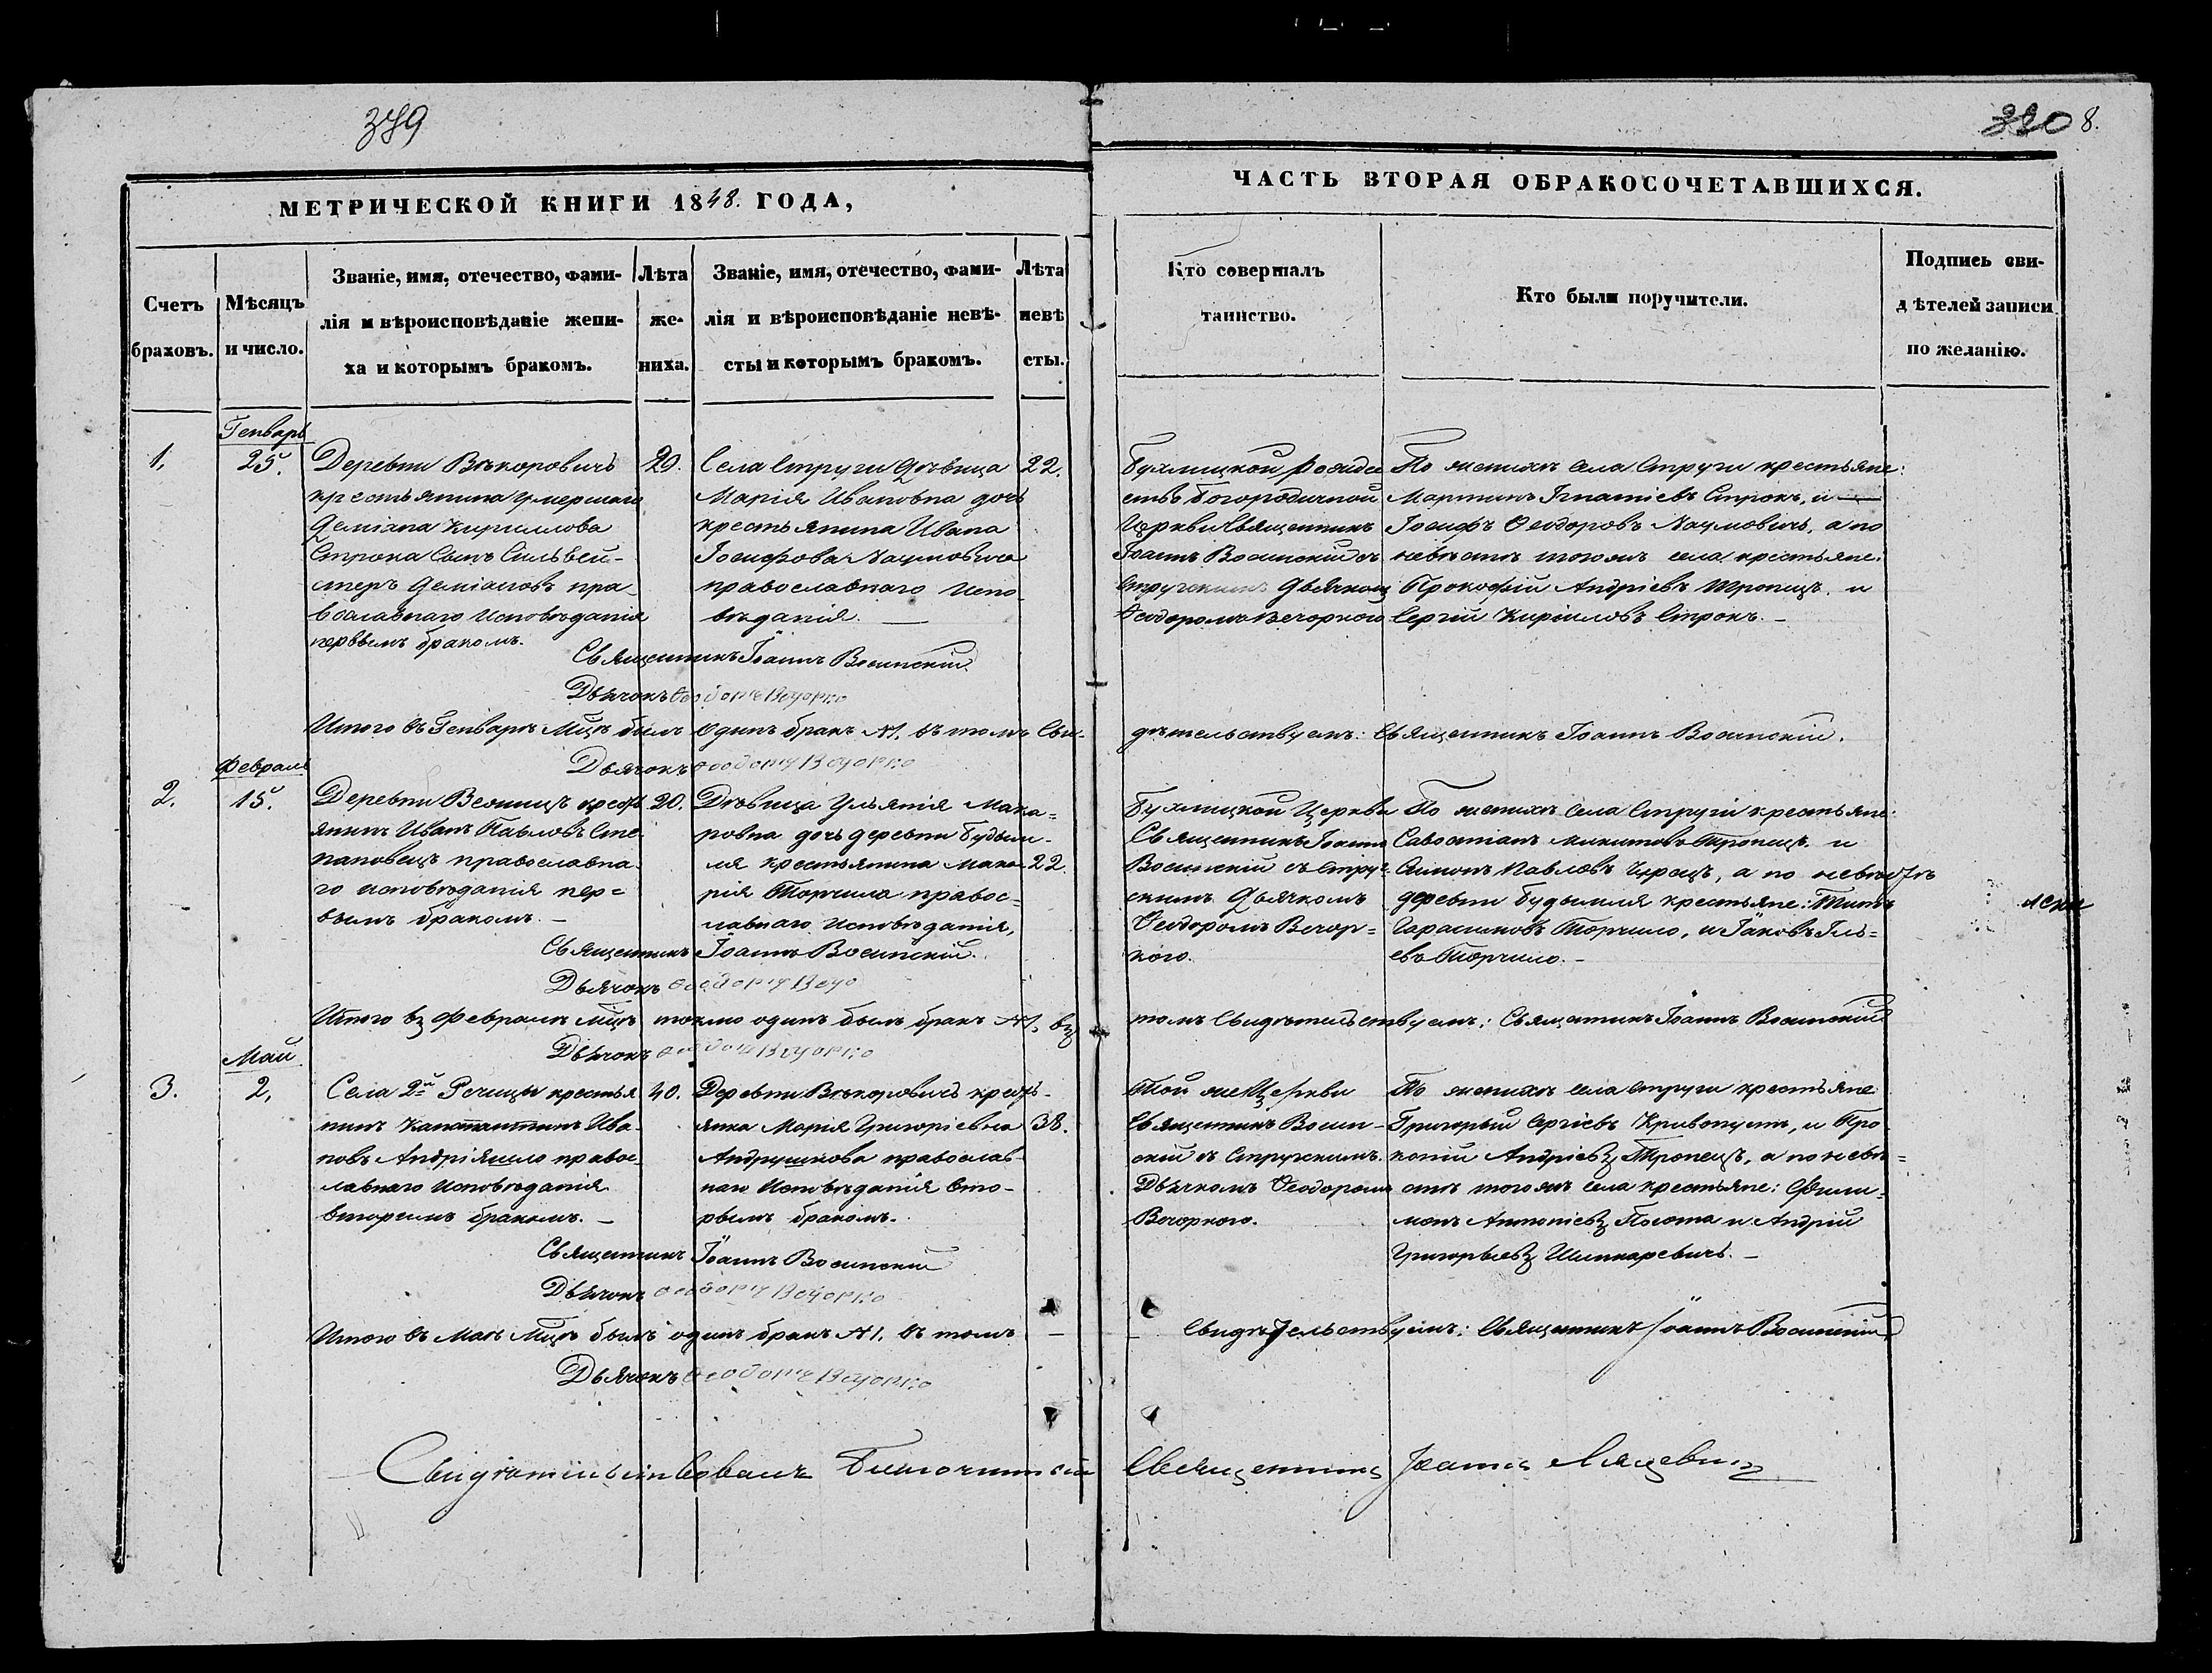 379
320 8.
МЕТРИЧЕСКОЙ КНИГИ 1848. ГОДА,
ЧАСТЬ ВТОРАЯ ОБРАКОСОЧЕТАВШИХСЯ.
Счетъ
браховъ.
Мѣсяцъ
и число.
Званіе, имя, отечество, фами-
лія и вѣроисповѣданіе жени-
ха и которымъ бракомъ.
Лѣта
же-
ниха.
Званіе, имя, отечество, фами-
лія и вѣроисповѣданіе невѣ-
сты и которымъ бракомъ.
Лѣта
невѣ
сты.
Кто совершалъ
таинство.
Кто были поручители.
Подпись сви-
дѣтелей записи
по желанію.
1.
Генварь
25.
Деревни Вѣкоровичъ
крестьянина умершаго
Деміана Кириллова
Строка Сынъ Сильвей-
стеръ Деміановъ пра-
вославнаго исповѣданія
первымъ бракомъ.
20.
Села Струги Дѣвица
Марія Ивановна дочь
крестьянина Ивана
Іосифова Наумовича
православнаго испо-
вѣданія. —
22.
Бухлицкой Рождe
ствo Богородичной
Церкви Священникъ
Іоаннъ Восинскій съ
Стружскимъ Дьячкомъ
Ѳеодоромъ Вечоркого
По женихѣ села Струги крестьяне:
Мартинъ Игнатіевъ Строкъ, и —
Іосифъ Ѳеодоровъ Наумовичъ, а по
невѣстѣ того жъ села крестьяне:
Прокофій Андріевъ Тропецъ, и
Сергій Кириловъ Строкъ. —
Священникъ Іоаннъ Восинскій
Дьячокъ Ѳеодоръ Вечорко
Итого въ Генварѣ Мцѣ былъ одинъ бракъ №1. въ томъ Сви-
дѣтельствуемъ: Священникъ Іоаннъ Восинскій.
Дьячокъ Ѳеодоръ Вечорко
2.
Февраль
15.
Деревни Велмицъ крест
янинъ Иванъ Павловъ Сте
пановецъ православна
го исповѣданія пер=
вымъ бракомъ. —
20.
Дѣвица Ульянія Мака=
ровна дочь деревни Будым-
ля крестьянина Мака
рія Торчила правос=
лавнаго исповѣданія,
22.
Бухлицкой Церкви
Священникъ Іоаннъ
Восинскій съ Струж
скимъ Дьячкомъ
Ѳеодоромъ Вечор=
кого.
По женихѣ села Струги крестьяне:
Савостіанъ Микитовъ Тропецъ, и
Симонъ Павловъ Чурецъ, а по невѣстѣ
деревни Будымля крестьяне: Титъ
Гарасимовъ Торчило, и Іаковъ Іль=
евъ Торчило. —
Священникъ Іоаннъ Восинскій.
Дьячокъ Ѳеодоръ Вечо
Итого въ Февралѣ Мцѣ токмо одинъ былъ бракъ №1. въ
томъ Свидѣтельствуемъ: Священникъ Іоаннъ Восинскій
Дьячокъ Ѳеодоръ Вечорко
3.
Май
2.
Села 2й Речицы крестья
нинъ Канстантинъ Ива-
новъ Андріяшло правос-
лавнаго исповѣданія
вторымъ бракомъ. —
40.
Деревни Вѣкоровичъ крест-
янка Марія Григоріевна
Андрушкова православ-
наго исповѣданія вто-
рымъ бракомъ.
38.
Той же Церкви
Священникъ Восин-
скій съ Стружскимъ
Дьячкомъ Ѳеодоромъ
Вечоркого.
По женихѣ села Струги крестьяне
Григорый Сергіевъ Кривопустъ, и Про
копій Андріевъ Тропецъ, а по невѣ=
стѣ того жъ села крестьяне: Фили-
монъ Антоніевъ Полота и Андрій
Григорьевъ Шинкаревичъ. —
Священникъ Іоаннъ Восинскій
Дьячокъ Ѳеодоръ Вечорко
Итого въ Маѣ Мцѣ былъ одинъ бракъ №1. въ томъ —
— Свидѣтельствуемъ: Священникъ Іоаннъ Восинскій
Дьячокъ Ѳеодоръ Вечорко
Свидѣтельствовалъ Благочинный Священникъ Іоаннъ